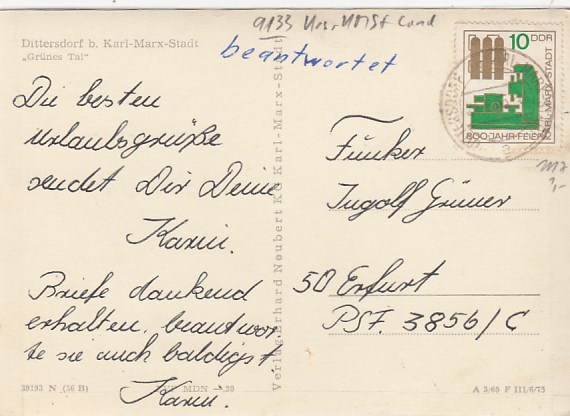 9133
beantwortet
Dittersdorf b. Karl-Marx-Stadt
„Grünes Tal"
10 DDR
KARL-MARX-STADT
800-JAHR-FEIER
Die besten
Urlaubsgrüße
sendet Dir Deine
Karin.
Briefe dankend
erhalten, beantwor
te sie auch baldigst
Karin.
Verlag Erhard Neubert KG Karl-Marx-Stadt
Funker
Ingolf Grüner
50 Erfurt
PSF. 3856/C
39193 N (56 B)
MDN -,20
A 3/65 F III/6/75